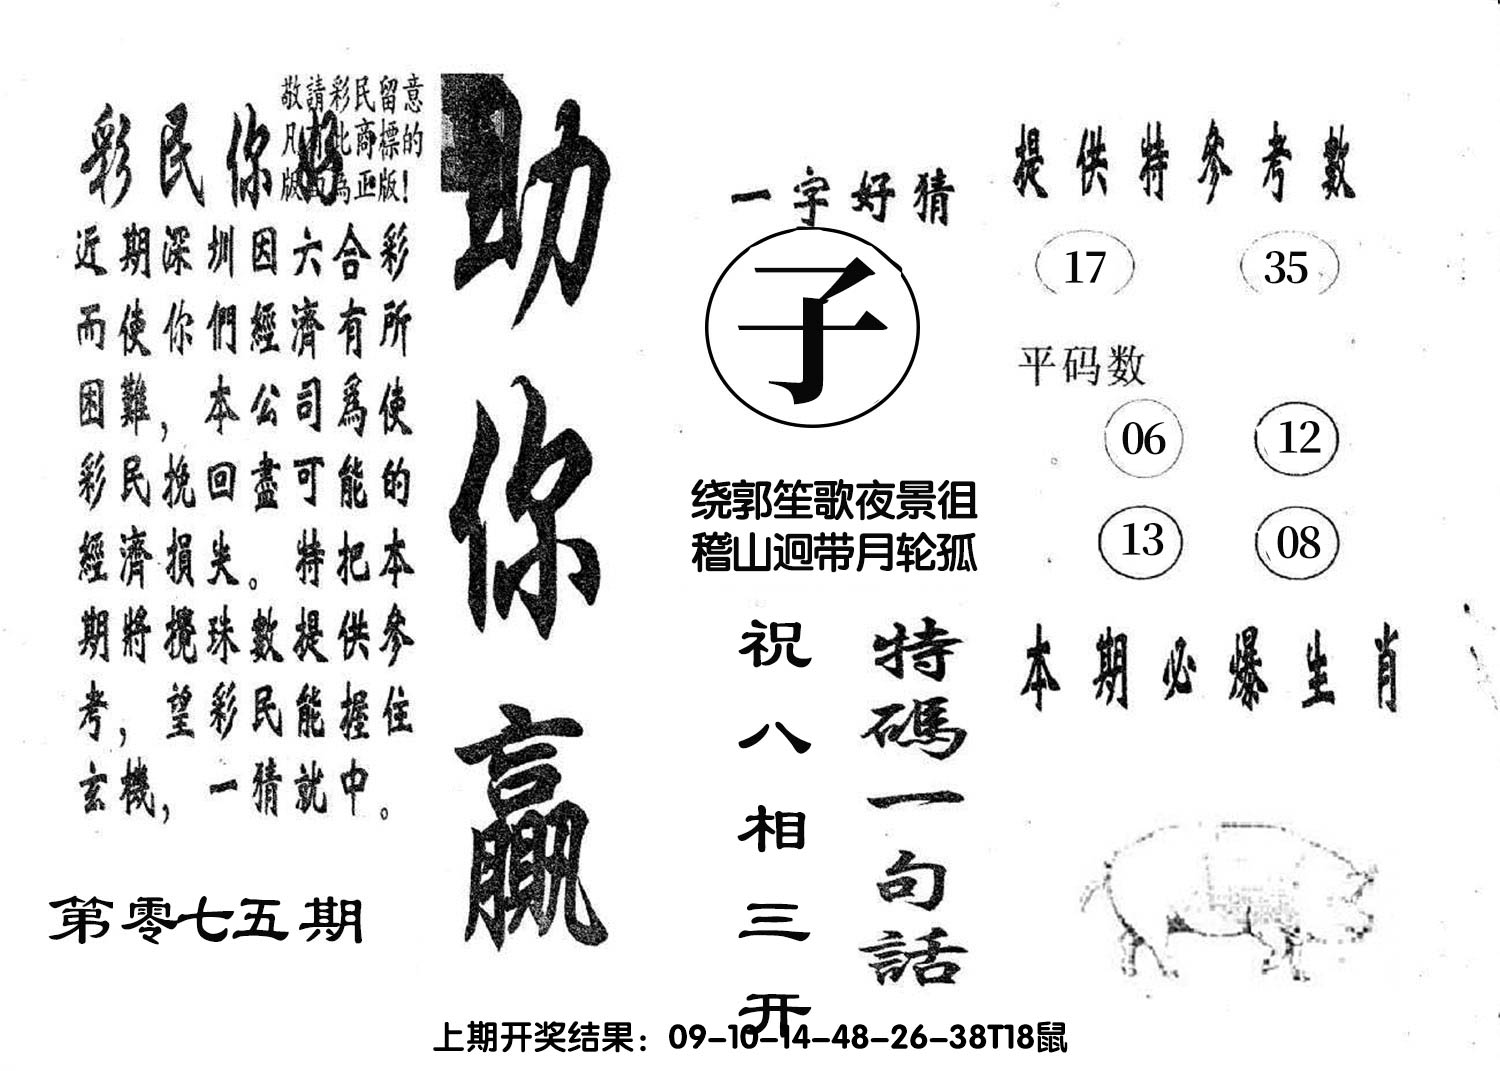 敬請彩民留意
凡有此商標的
版面為正版！
彩民你好
近期深圳因六合彩
而使你們經濟有所
困難，本公司爲使
彩民挽回盡可能的
經濟損失。特把本
期將攪珠數提供參
考，望彩民能握住
玄機，一猜就中。
第零七五期
助你贏
一字好猜
子
绕郭笙歌夜景徂
稽山迥带月轮孤
特碼一句話
祝八相三开
提供特參考數
17 35
平码数
06 12
13 08
本期必爆生肖
上期开奖结果：09-10-14-48-26-38T18鼠